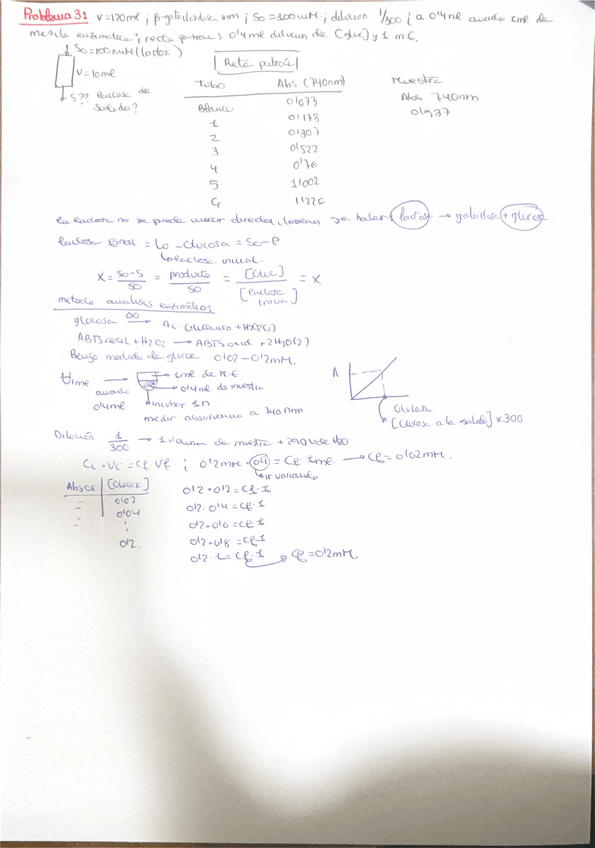 Problema 3: V=120ml ; β-galactosidasa inm ; So=100mM ; dilución 1/300 ; a 0'4ml añado 1ml de
mezcla enzimática ; recta patrón : 0'4ml dilución de [gluc] y 1 m E.
So=100mM (lactosa)
V=10ml
S?? lactosa de salida?
Recta patrón
Tubo Abs (740nm)
Blanco 0'073
1 0'178
2 0'307
3 0'522
4 0'76
5 1'002
1'226
Muestra
Abs 740nm
0'937
la lactosa no se puede medir directa, lactosa → galactosa + glucosa
lactosa final = Lo - Glucosa = So-P
lactosa inicial
X = So-S/So = producto/So = [Gluc]/[lactosa inicial] = X
método análisis enzimático
glucosa GO → Ac. Glucónico + H2O2 (1)
ABTS red + H2O2 → ABTS oxid + 2H2O (2)
Rango medida de glucosa 0'02-0'2mM.
1ml
añado
0'4ml
1ml de M.E
0'4ml de muestra
incubar
medir absorbancia a 740nm
A
Glucosa
[Glucosa a la salida] x 300
Dilución 1/300 → 1 volumen de muestra + 299 V de
Ci · Vi = Cf · Vf ; 0'2mM · 0'1 = Cf · 1ml → Cf = 0'02mM.
ir variando
Absor [Glucosa]
- 0'02
- 0'04
0'2.
0'2 · 0'2 = Cf · 1
0'2 · 0'4 = Cf · 1
0'2 · 0'6 = Cf · 1
0'2 · 0'8 = Cf · 1
0'2 · 1 = Cf · 1 → Cf = 0'2mM